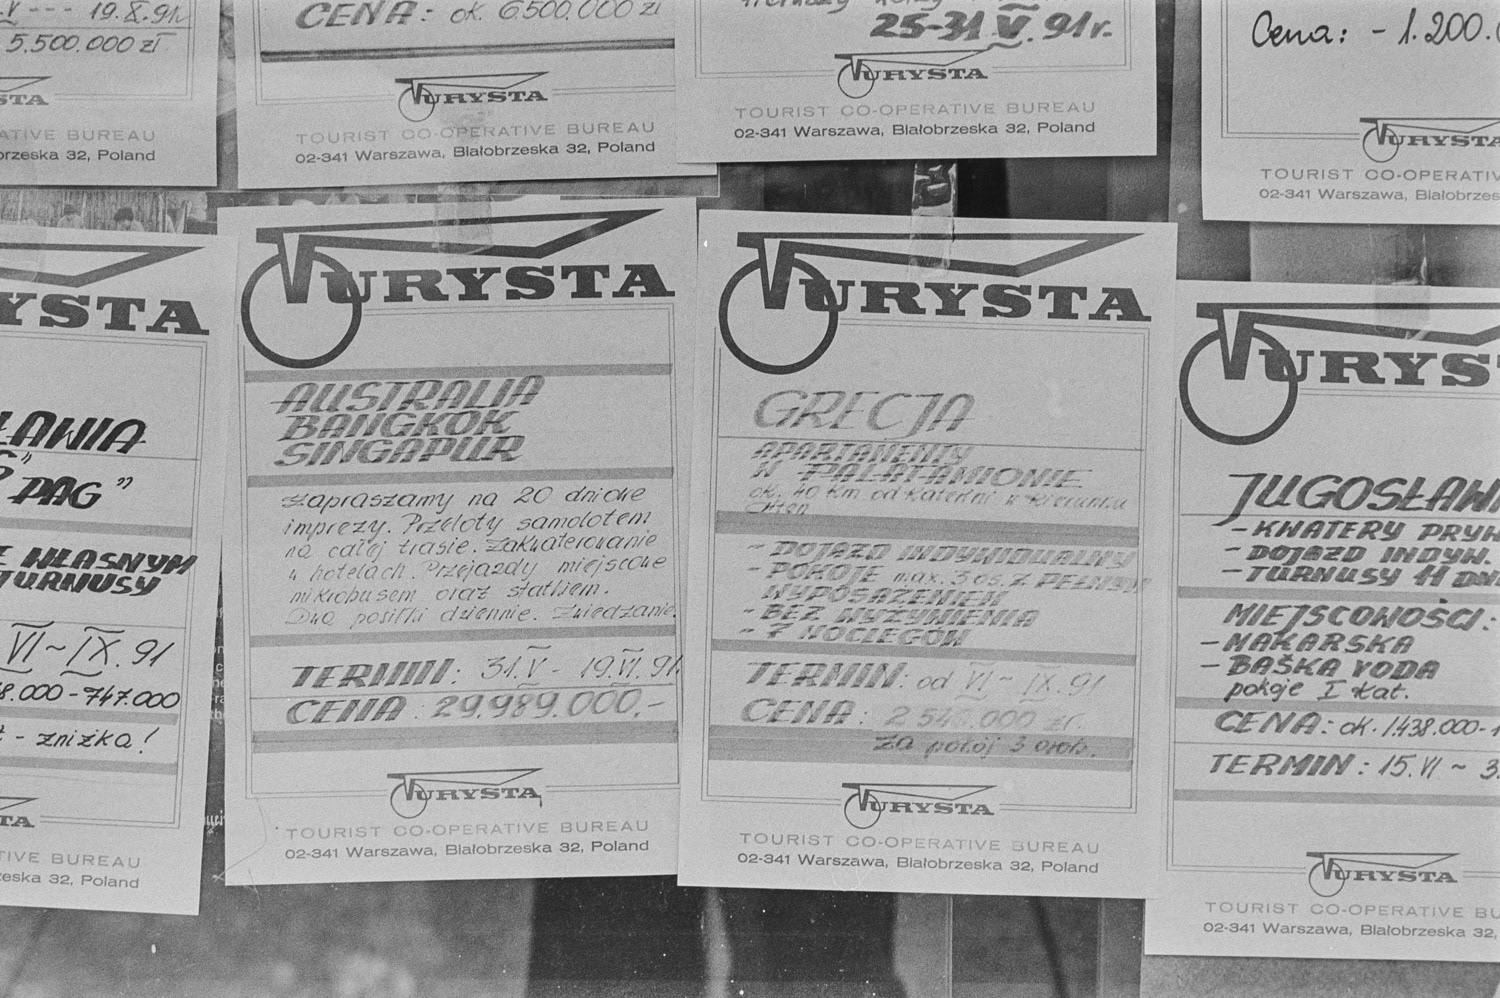 19.X.91.
5.500.000 zł
YSTA
ATIVE BUREAU
orzeska 32, Poland
CENA: ok. 6.500.000 zł
TURYSTA
TOURIST CO-OPERATIVE BUREAU
02-341 Warszawa, Białobrzeska 32, Poland
25-31 V. 91r.
TURYSTA
TOURIST CO-OPERATIVE BUREAU
02-341 Warszawa, Białobrzeska 32, Poland
Cena: - 1.200.
TURYSTA
TOURIST CO-OPERA
02-341 Warszawa, Białobrzes
YSTA
ŁAWIA
PAG"
WŁASNYM
TURNUSY
VI ~ IX. 91
8.000 - 747.000
- zniżka!
TA
TIVE BUREAU
zeska 32, Poland
TURYSTA
AUSTRALIA
BANGKOK
SINGAPUR
Zapraszamy na 20 dniowe
imprezy. Przeloty samolotem
na całej trasie. Zakwaterowanie
w hotelach. Przejazdy miejscowe
mikrobusem oraz statkiem.
Dwa posiłki dziennie. Zwiedzanie.
TERMIN: 31.V - 19.VI.91.
CENA: 29.989.000,-
TURYSTA
TOURIST CO-OPERATIVE BUREAU
02-341 Warszawa, Białobrzeska 32, Poland
TURYSTA
GRECJA
APARTAMENTY
W PALATAMIONIE
ok. 40 km od Kateríni w kierunku
Aten
- DOJAZD INDYWIDUALNY
- POKOJE max. 3 os. Z PEŁNYM
WYPOSAŻENIEM
- BEZ WYŻYWIENIA
- 7 NOCLEGÓW
TERMIN: od VI ~ IX.91
CENA: 2 540.000 zł.
za pokój 3 osob.
TURYSTA
TOURIST CO-OPERATIVE BUREAU
02-341 Warszawa, Białobrzeska 32, Poland
TURYS
JUGOSŁAW
- KWATERY PRYW
- DOJAZD INDYW.
- TURNUSY 11 DN
MIEJSCOWOŚCI:
- MAKARSKA
- BAŠKA VODA
pokoje I kat.
CENA: ok. 1.438.000-1
TERMIN: 15.VI ~ 3
TURYSTA
TOURIST CO-OPERATIVE BU
02-341 Warszawa, Białobrzeska 32,